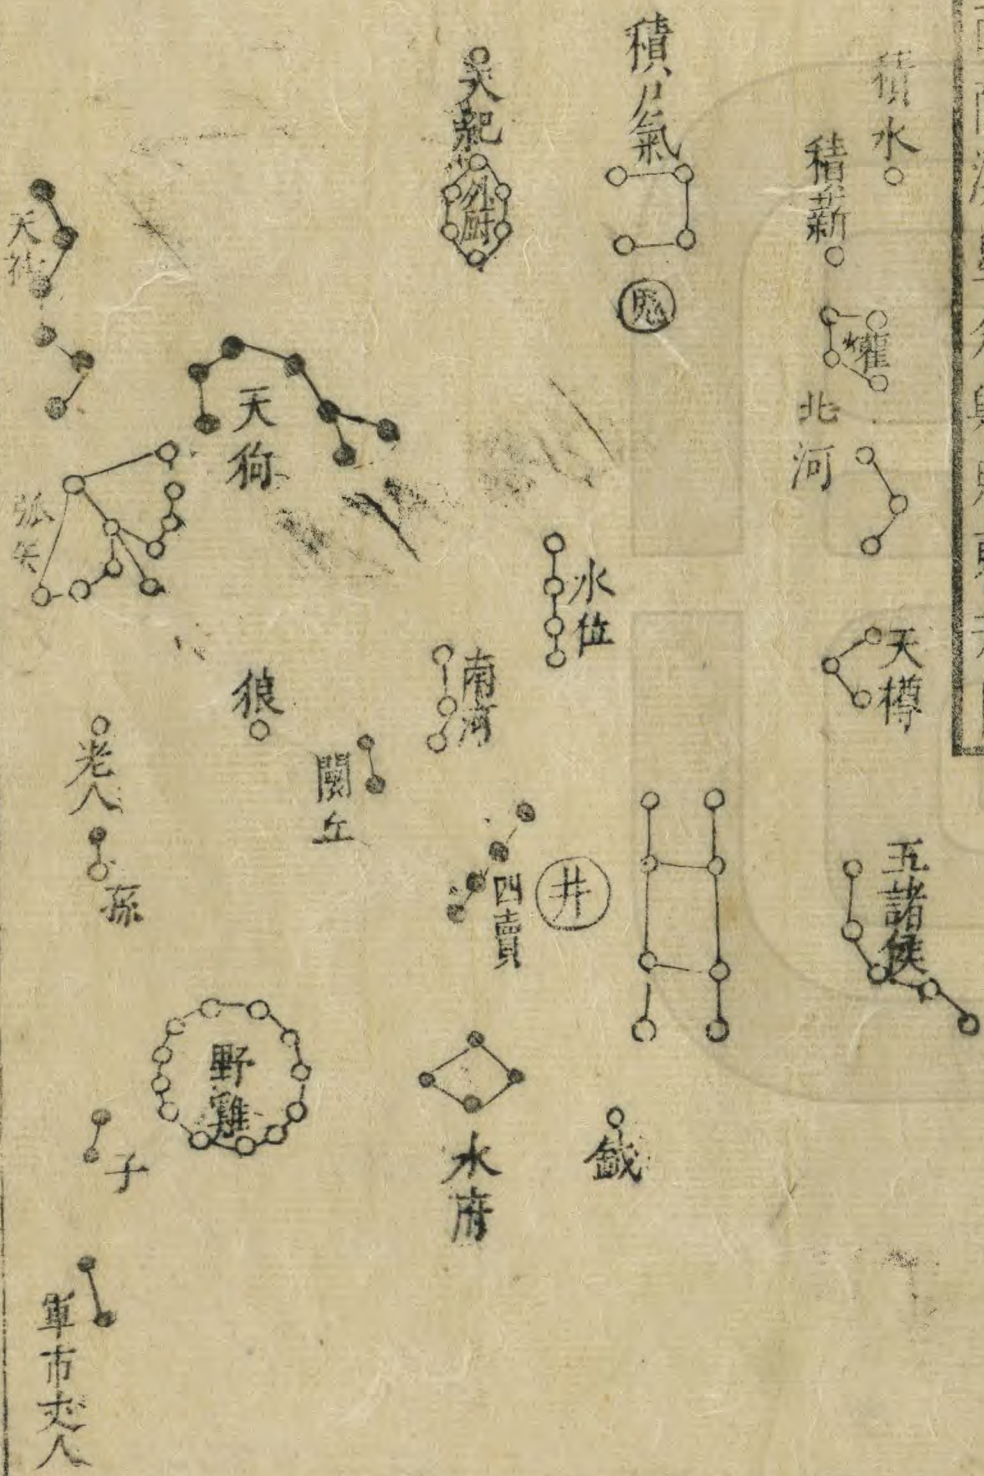 積水
積薪
爟
北河
天樽
五諸侯
積尸氣
鬼
水位
井
鉞
天紀
外廚
南河
四賣
水府
天狗
狼
闕丘
野雞
弧矢
老人
孫
子
軍市
丈人